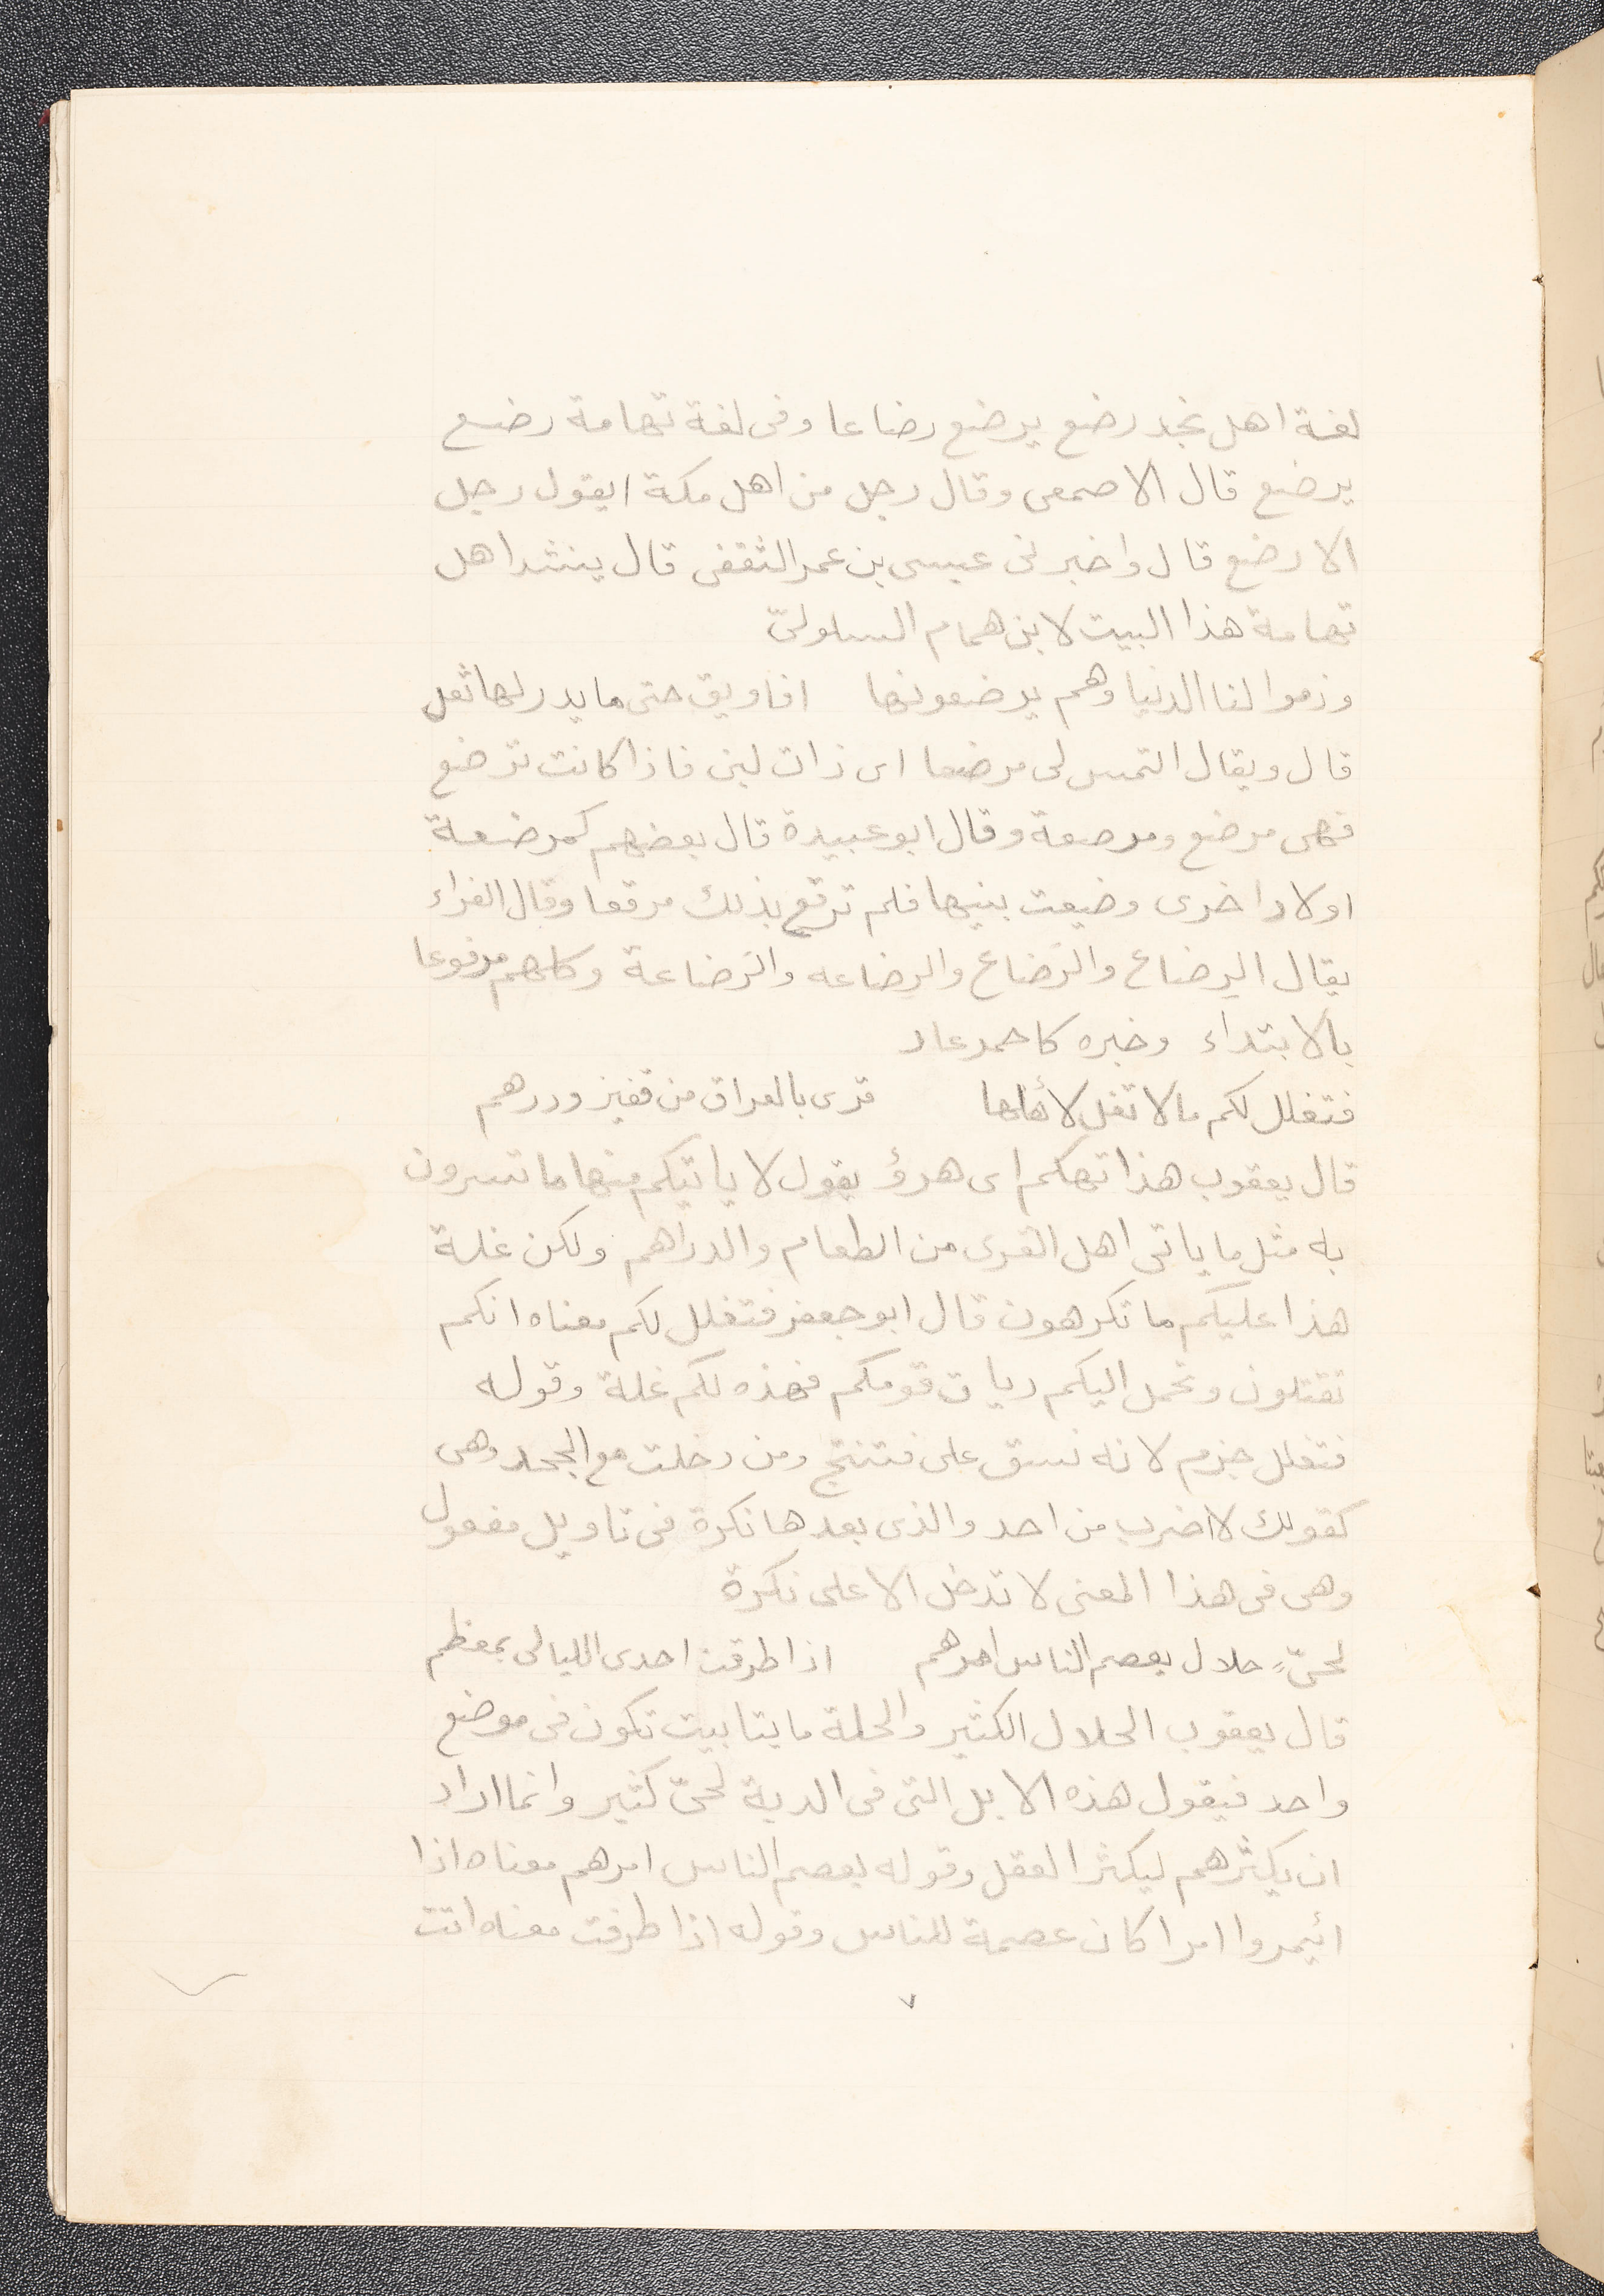 لغة اهل نجد رضع يرضع رضاعا وفى لغة تهامة رضع
يرضع قال الاصمعى وقال رجل من اهل مكة ايقول رجل
الا رضع قال واخبرنى عيسى بن عمر الثقفى قال ينشد اهل
تهامة هذا البيت لابن همام السلولىّ
وذموا لنا الدنيا وهم يرضعونها افاويق حتى ما يدر لها ثعل
قال ويقال التمس لى مرضعا اى ذات لبن فاذا كانت ترضع
فهى مرضع ومرضعة وقال ابو عبيدة قال بعضهم كمرضعة
اولاد اخرى وضيعت بنيها فلم ترقع بذلك مرقعا وقال الفراء
يقال الرِضاع والرَضاع والرِضاعه والرَضاعة وكلهم مرفوعا
بالابتداء وخبره كاحمر عاد
فتغلل لكم ما لا تغل لأهلها قرى بالعراق من قفيز ودرهم
قال يعقوب هذا تهكم اى هزؤ يقول لا ياتيكم منها ما تسرون
به مثل ما ياتى اهل القرى من الطعام والدراهم ولكن غلة
هذا عليكم ما تكرهون قال ابو جعفر فتغلل لكم معناه انكم
تقتلون وتحمل اليكم ديات قومكم فهذه لكم غلة وقوله
فتغلل جزم لانه نسق على فتنتج ومن دخلت مع الجحد وهى
كقولك لا اضرب من احد والذى بعدها نكرة فى تاويل مفعول
وهى فى هذا المعنى لا تدخل الا على نكرة
لحىّ حلال يعصم الناس امرهم اذا طرقت احدى الليالى بمعظم
قال يعقوب الحلال الكثير والحلة مايتا بيت تكون فى موضع
واحد فيقول هذه الابل التى فى الدية لحىّ كثير وانما اراد
ان يكثّرهم ليكثر العقل وقوله يعصم الناس امرهم معناه اذا
ائيمروا امرا كان عصمة للناس وقوله اذا طرقت معناه اتت
٧